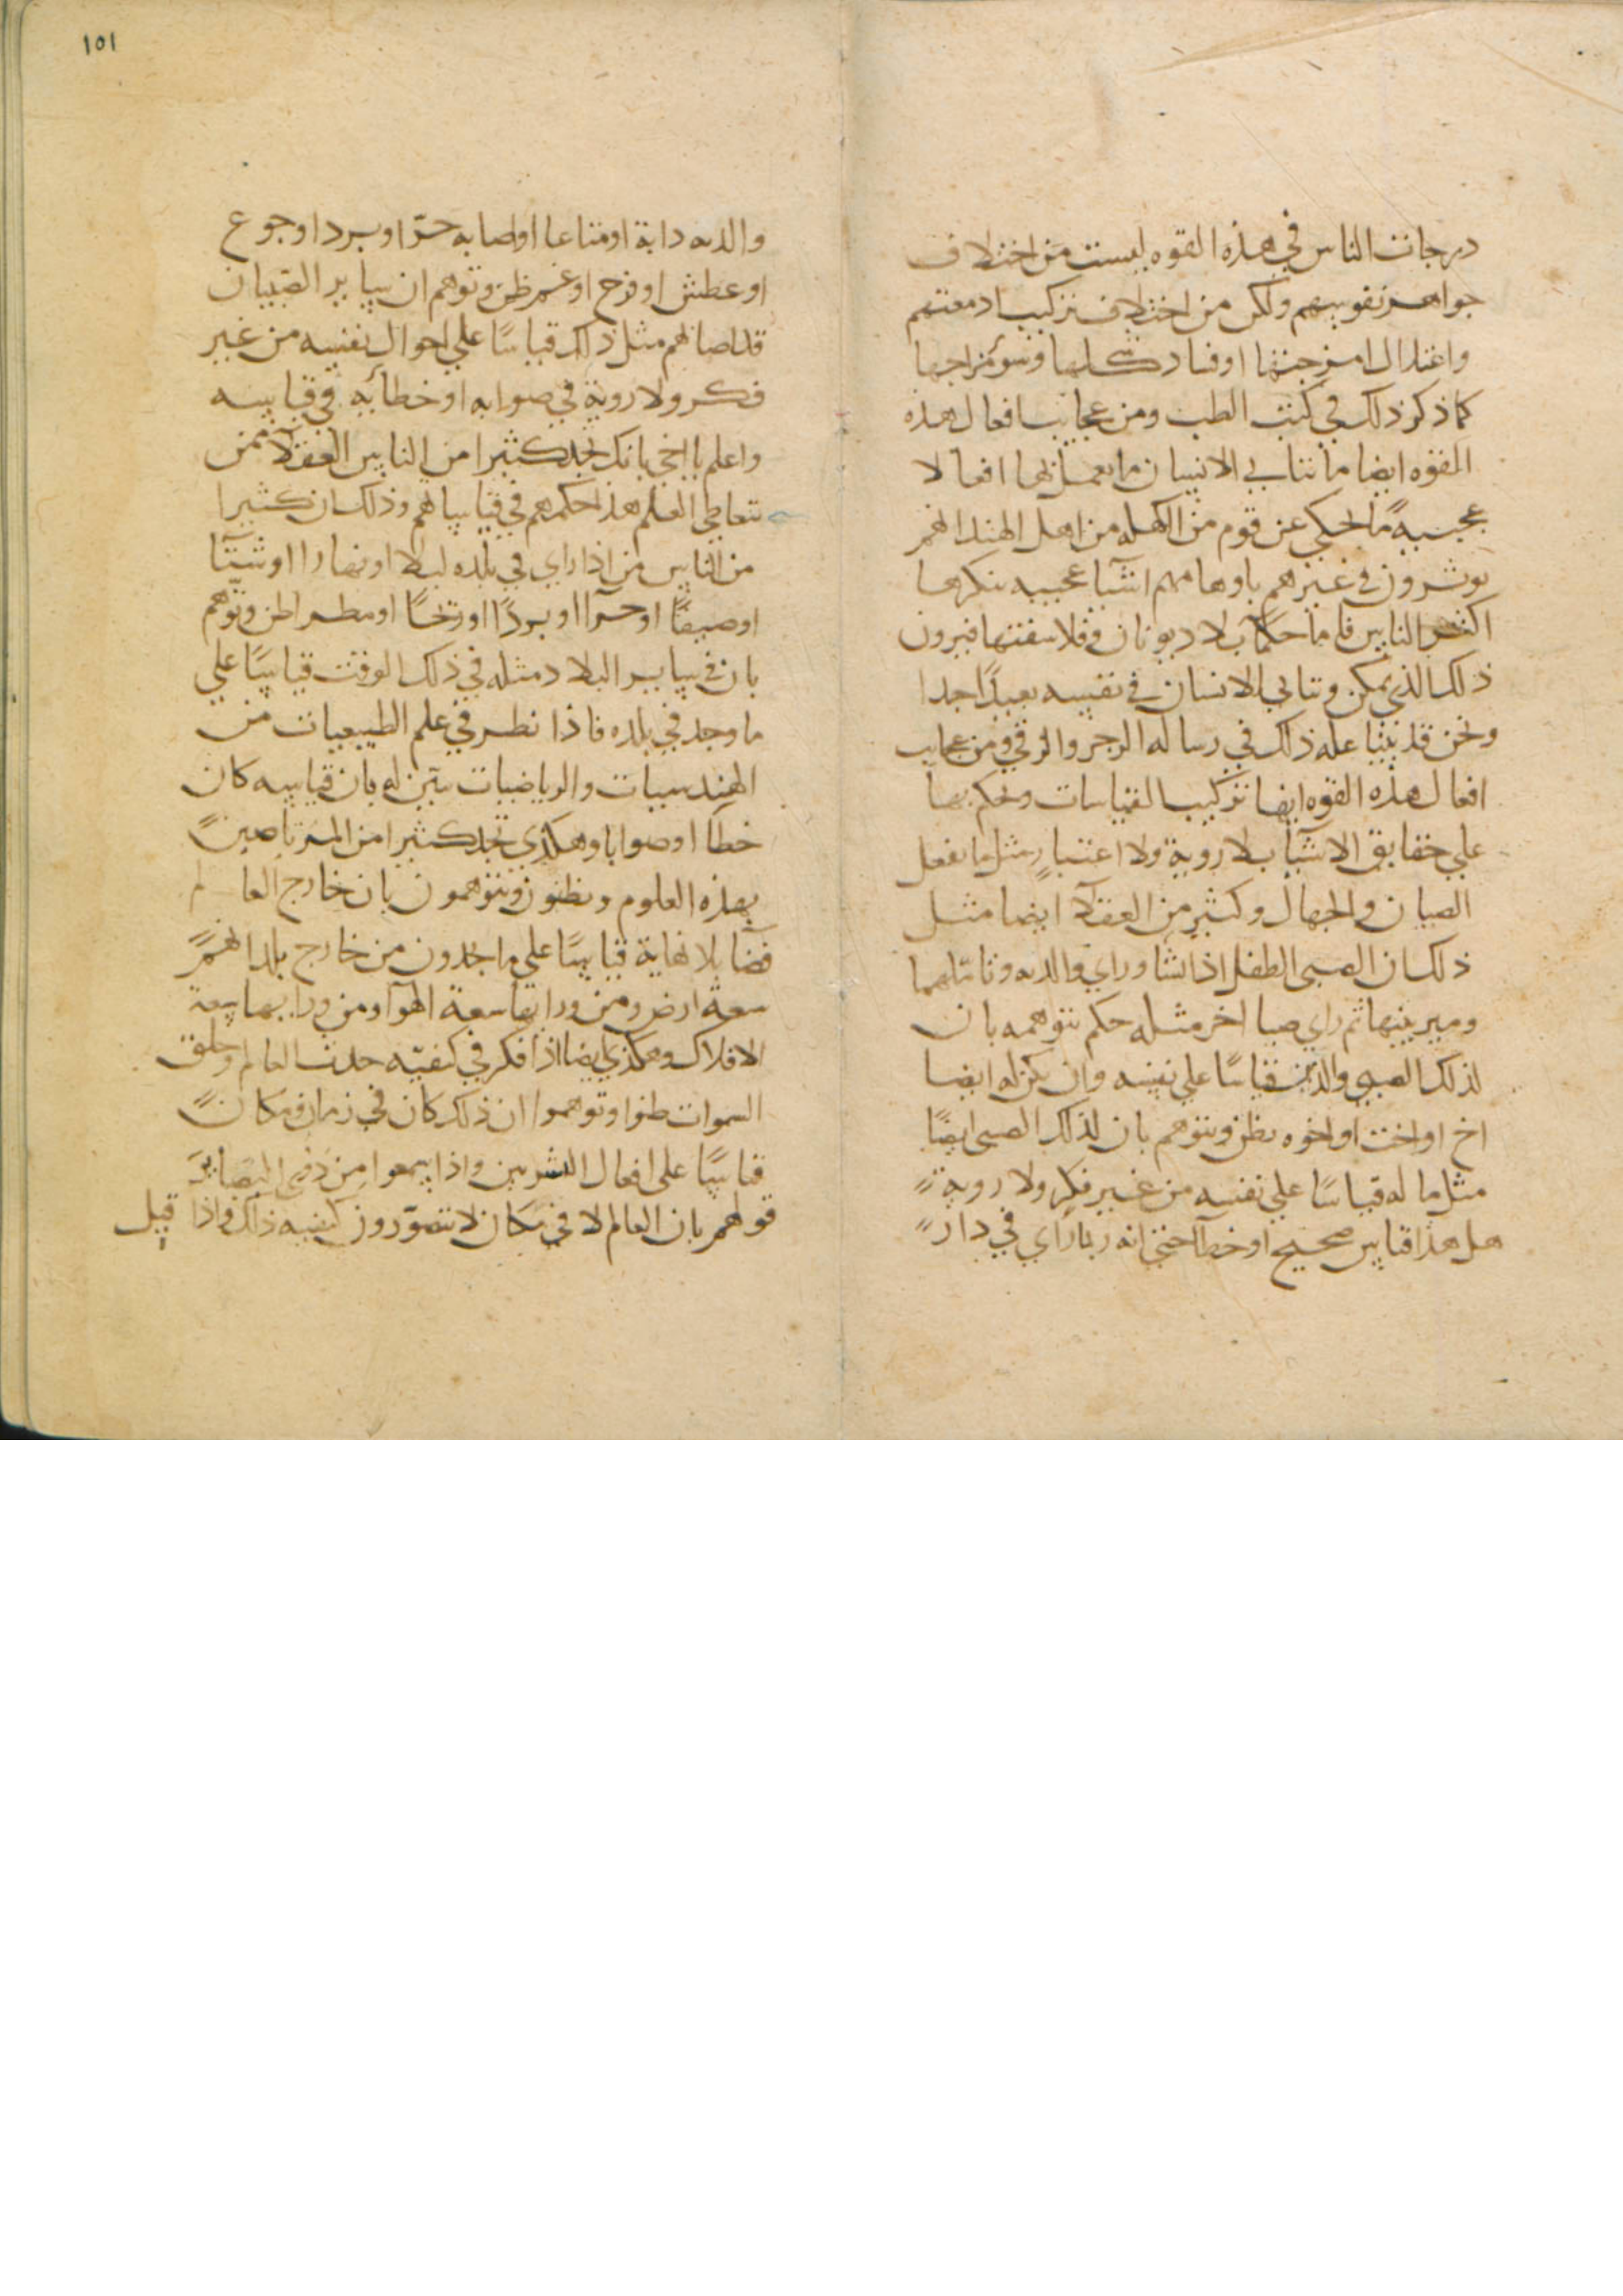 درجات الناس في هذه القوه ليست من اختلاف
جواهر نفوسهم ولكن من اختلاف تركيب ادمغتهم
واعتدال امزجتها او فساد شكلها وسوء مزاجها
كما ذكر ذلك في كتب الطب ومن عجايب افعال هذه
القوه ايضا ما تتاتي الانسان ما يعمل بها افعالا
عجيبه ما يحكي عن قوم من الكهله من اهل الهند انهم
يوثرون في غيرهم باوهامهم اشيا عجيبه ينكرها
اكثر الناس فاما حكما بلاد يونان وفلاسفتها فيرون
ذلك الذي يمكن وتتاتي الانسان في نفسه بعيدا جدا
ونحن قد بينا عله ذلك في رساله الزجر والرقي ومن عجايب
افعال هذه القوه ايضا تركيب القياسات وتحكم بها
علي حقايق الاشيا بلا روية ولا اعتبار مثل ما يفعل
الصبيان والجهال وكثير من العقلا ايضا مثل
ذلك ان الصبي الطفل اذا نشا وراي والديه وتاملهما
وميز بينهما ثم راي صبيا اخر مثله حكم بتوهمه بان
لذلك الصبي والدين قياسا علي نفسه وان يكن له ايضا
اخ او اخت او اخوه يظن ويتوهم بان لذلك الصبي ايضا
مثل ما له قياسا علي نفسه من غير فكر ولا روية
هل هذا قياس صحيح او خطا حتي انه ربما راي في دار
١٥١
والديه دابة او متاعا او اصابه حر او برد او جوع
او عطش او فرح او غم ظن وتوهم ان ساير الصبيان
قد اصابهم مثل ذلك قياسا علي احوال نفسه من غير
فكر ولا روية في صوابه او خطائه في قياسه
واعلم يا اخي بانك تجد كثيرا من الناس العقلا ممن
يتعاطي العلم هذا حكمهم في قياساتهم وذلك ان كثيرا
من الناس من اذا راي في بلده ليلا او نهارا او شتا
او صيفا او حرا او بردا او ريحا او مطرا ظن وتوهم
بان في ساير البلاد مثله في ذلك الوقت قياسا علي
ما وجد في بلده فاذا نظر في علم الطبيعيات من
الهندسيات والرياضيات تبين له بان قياسه كان
خطا او صوابا وهكذي تجد كثيرا من المرتاضين
بهذه العلوم ويظنون ويتوهمون بان خارج العالم
فضا بلا نهاية قياسا علي ما يجدون من خارج بلدانهم
سعة ارض ومن ورايها سعة الهوا ومن ورايها سعة
الافلاك وهكذي ايضا اذا فكر في كيفيه حدث العالم وخلق
السموات ظنوا وتوهموا ان ذلك كان في زمان ومكان
قياسا علي افعال البشريين واذا سمعوا من ذوي البصاير
قولهم بان العالم لا في مكان لا يتصورون كيفيه ذلك واذا قيل